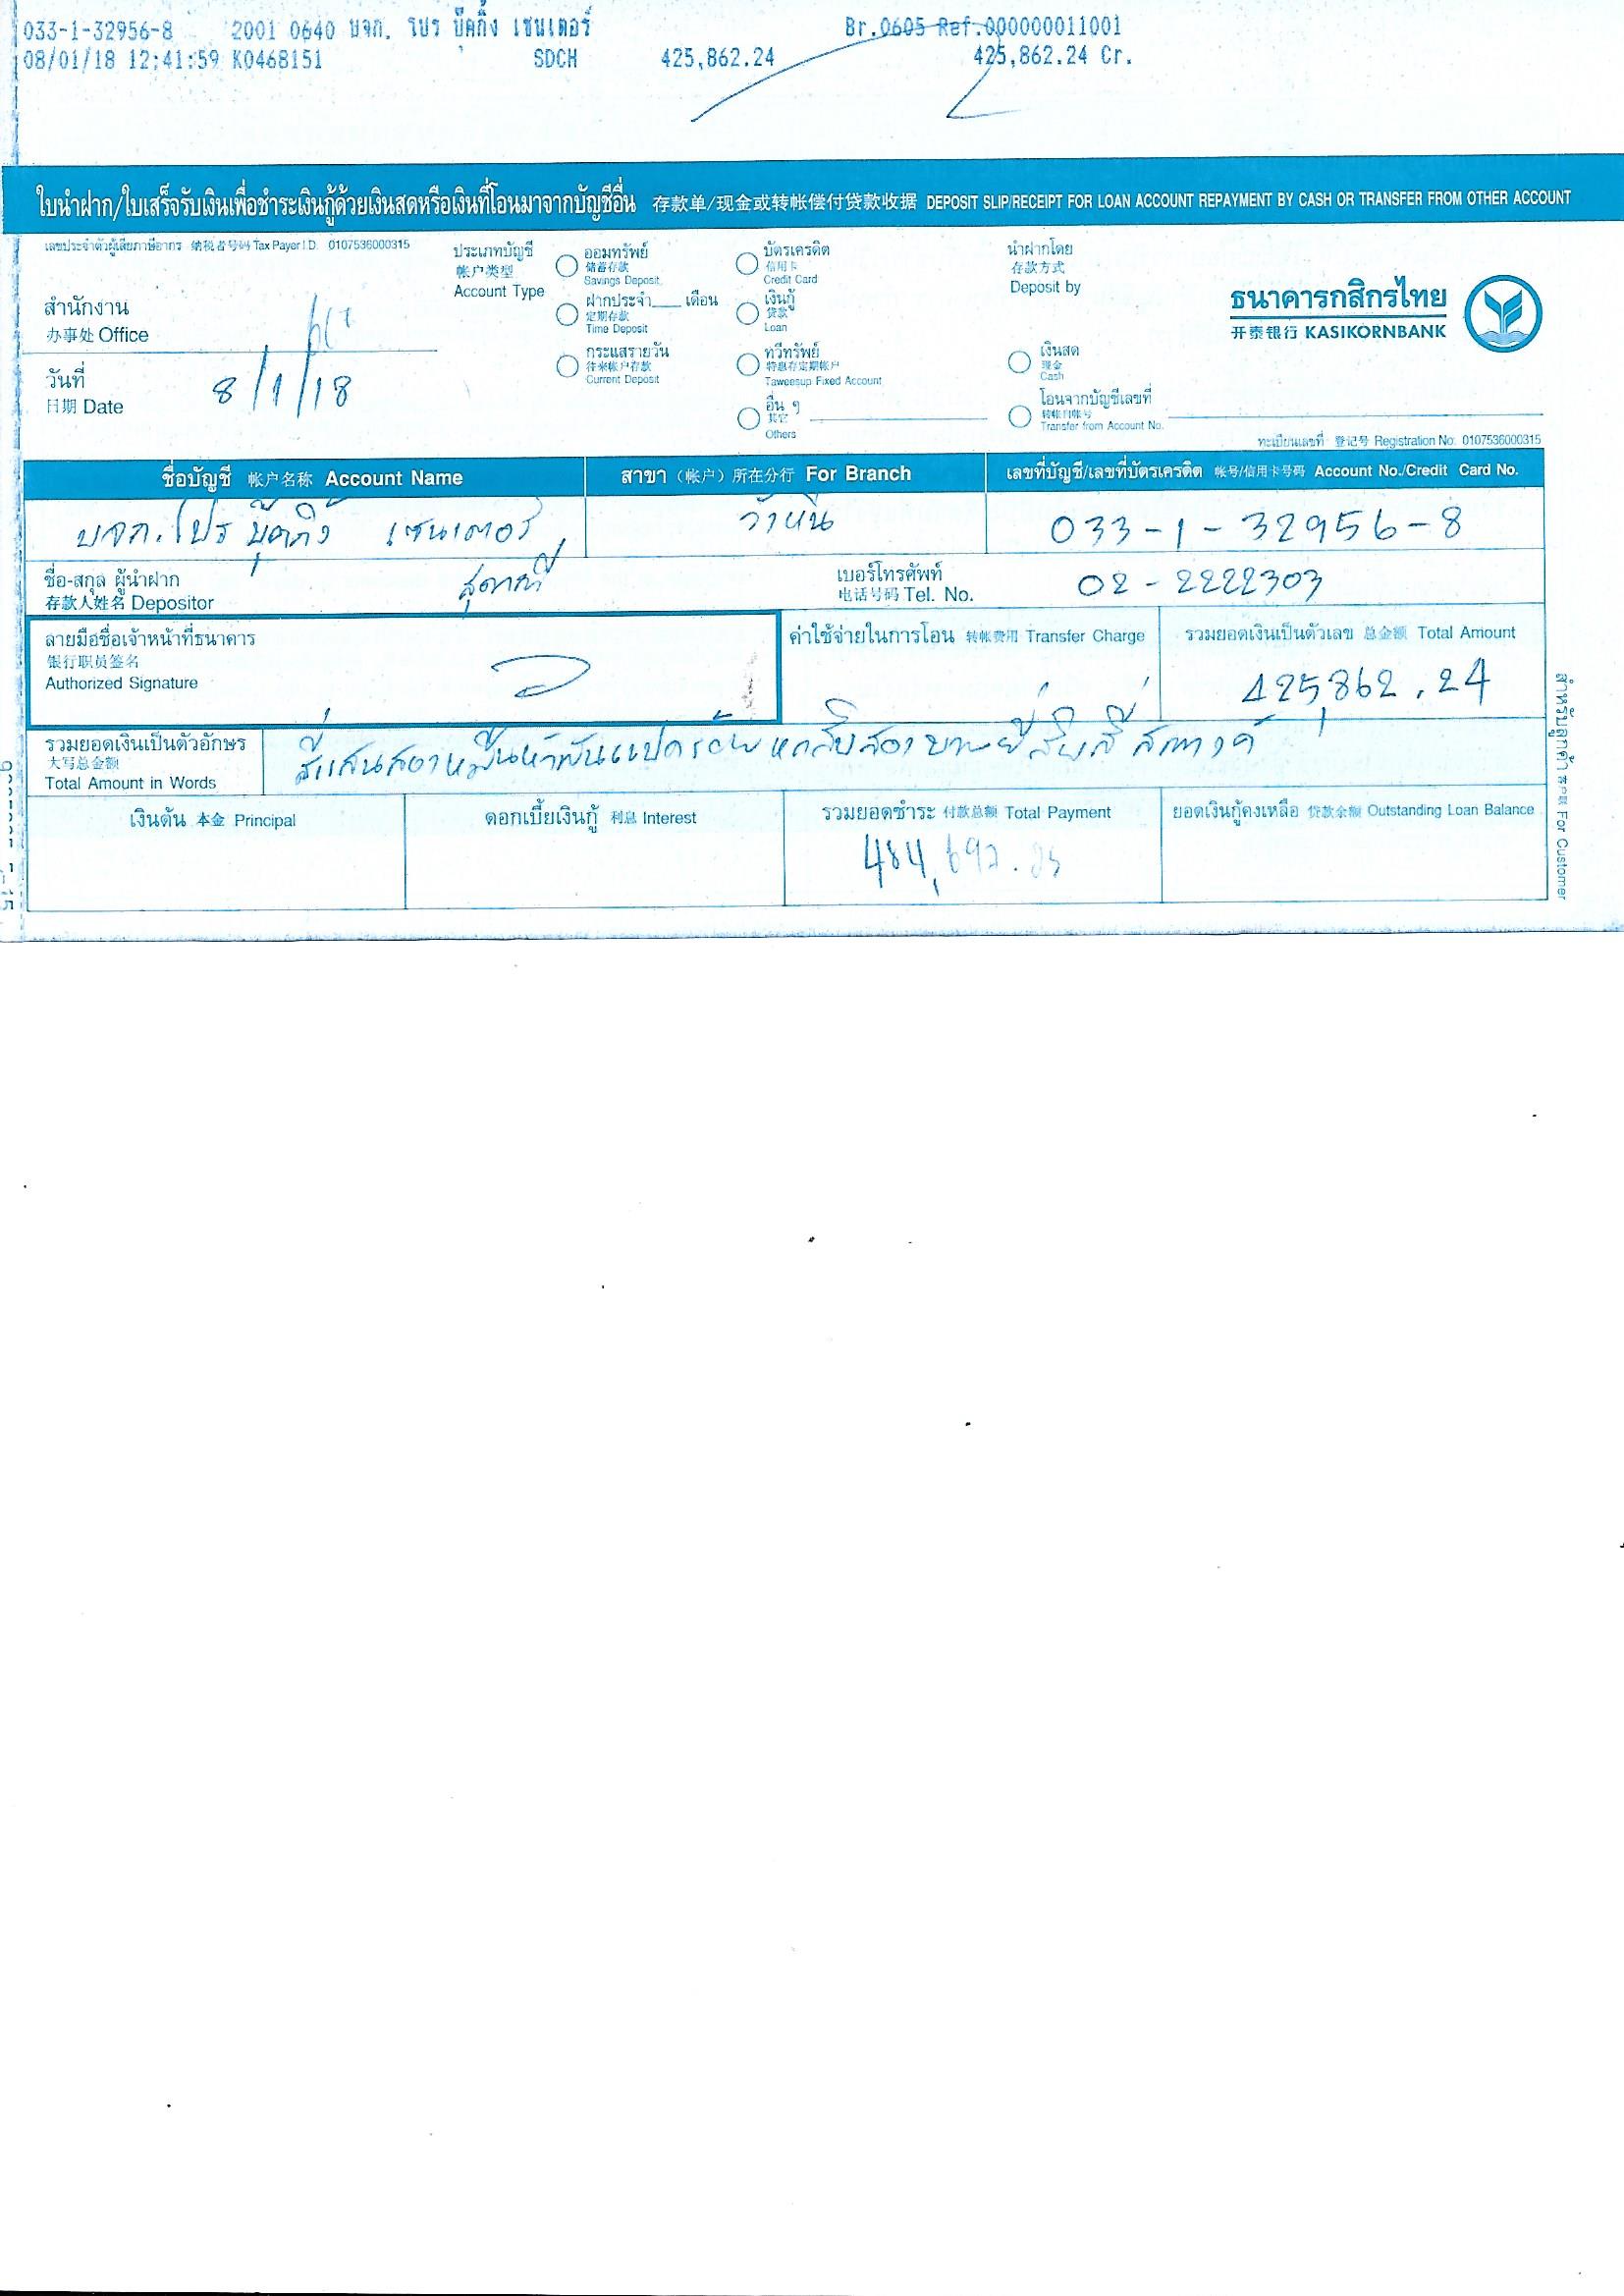 033-1-32956-8 2001 0640 บจก. โปร บุ๊คกิ้ง เซนเตอร์ Br.0605 Ref.000000011001
08/01/18 12:41:59 K0468151 SDCH 425,862.24 425,862.24 Cr.
ใบนำฝาก/ใบเสร็จรับเงินเพื่อชำระเงินกู้ด้วยเงินสดหรือเงินที่โอนมาจากบัญชีอื่น 存款单/现金或转帐偿付贷款收据 DEPOSIT SLIP/RECEIPT FOR LOAN ACCOUNT REPAYMENT BY CASH OR TRANSFER FROM OTHER ACCOUNT
เลขประจำตัวผู้เสียภาษีอากร 纳税者号码 Tax Payer I.D. 0107536000315
สำนักงาน
办事处 Office
วันที่
日期 Date 8/1/18
ประเภทบัญชี
帐户类型
Account Type
ออมทรัพย์
储蓄存款
Savings Deposit
ฝากประจำ___ เดือน
定期存款
Time Deposit
กระแสรายวัน
往来帐户存款
Current Deposit
บัตรเครดิต
信用卡
Credit Card
เงินกู้
贷款
Loan
ทวีทรัพย์
特惠存定期帐户
Taweesup Fixed Account
อื่น ๆ
其它
Others
นำฝากโดย
存款方式
Deposit by
เงินสด
现金
Cash
โอนจากบัญชีเลขที่
转帐自帐号
Transfer from Account No.
ธนาคารกสิกรไทย
开泰银行 KASIKORNBANK
ทะเบียนเลขที่ 登记号 Registration No. 0107536000315
ชื่อบัญชี 帐户名称 Account Name สาขา (帐户) 所在分行 For Branch เลขที่บัญชี/เลขที่บัตรเครดิต 帐号/信用卡号码 Account No./Credit Card No.
บจก. โปร บุ๊คกิ้ง เซนเตอร์ 033-1-32956-8
ชื่อ-สกุล ผู้นำฝาก
存款人姓名 Depositor
เบอร์โทรศัพท์
电话号码 Tel. No. 02-2222303
ลายมือชื่อเจ้าหน้าที่ธนาคาร
银行职员签名
Authorized Signature
ค่าใช้จ่ายในการโอน 转帐费用 Transfer Charge
รวมยอดเงินเป็นตัวเลข 总金额 Total Amount
425,862.24
รวมยอดเงินเป็นตัวอักษร
大写总金额
Total Amount in Words
สี่แสนสองหมื่นห้าพันแปดร้อยหกสิบสองบาทยี่สิบสี่สตางค์
เงินต้น 本金 Principal ดอกเบี้ยเงินกู้ 利息 Interest รวมยอดชำระ 付款总额 Total Payment ยอดเงินกู้คงเหลือ 贷款余额 Outstanding Loan Balance
สำหรับลูกค้า 客户联 For Customer